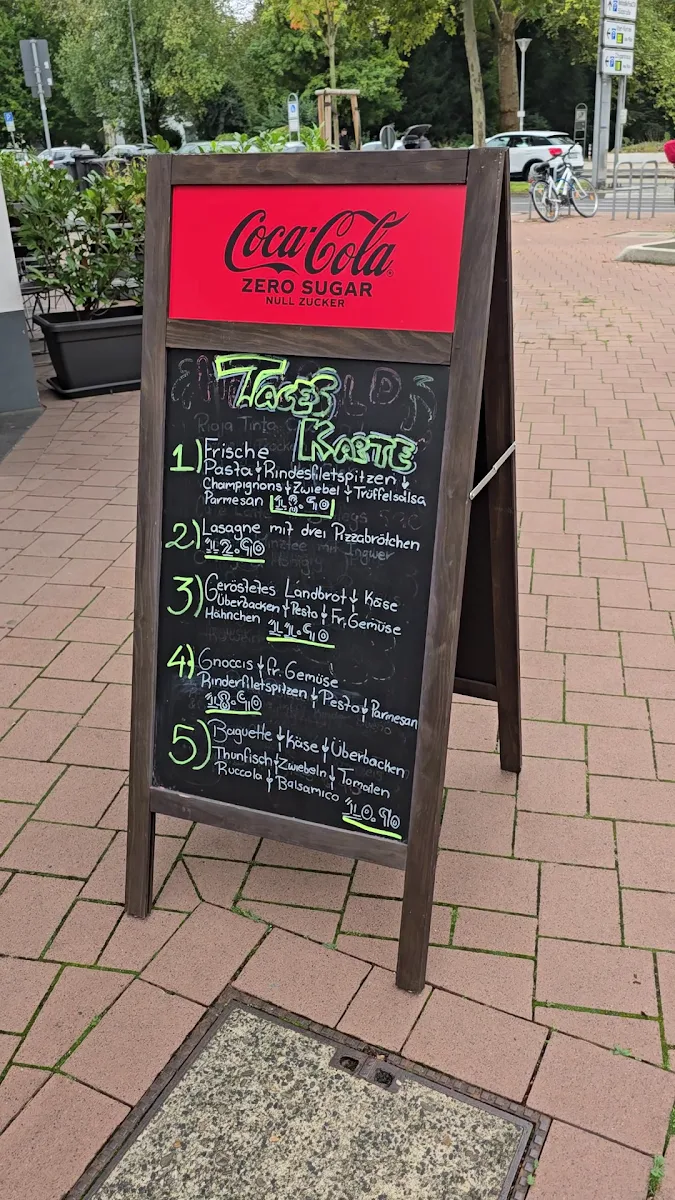 Coca-Cola
ZERO SUGAR
NULL ZUCKER
TAGES
KARTE
1) Frische
Pasta Rindesfiletspitzen
Champignons Zwiebel Trüffelsalsa
Parmesan 18.90
2) Lasagne mit drei Pizzabrötchen
12.90
3) Geröstetes Landbrot Käse
Überbacken Pesto Fr. Gemüse
Hähnchen 11.90
4) Gnoccis fr. Gemüse
Rinderfiletspitzen Pesto Parmesan
18.90
5) Baguette Käse Überbacken
Thunfisch Zwiebeln Tomaten
Ruccola Balsamico 10.90